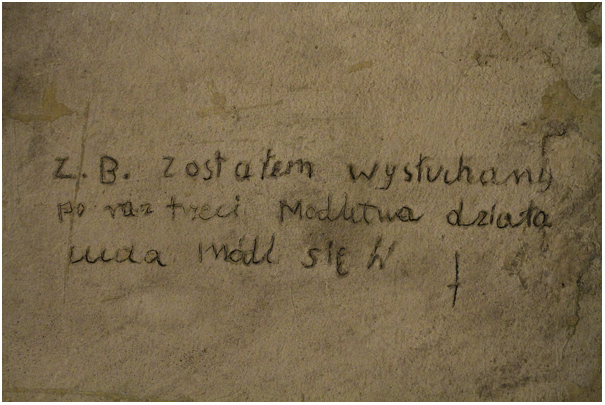 Z. B. Zostałem wysłuchany
po raz trzeci Modlitwa działa
cuda Módl się